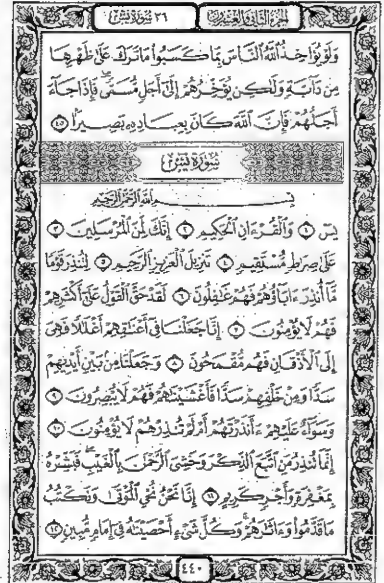 الجزء الثاني والعشرون ٣٦ سورة يس
وَلَوْ يُؤَاخِذُ اللَّهُ النَّاسَ بِمَا كَسَبُوا مَا تَرَكَ عَلَىٰ ظَهْرِهَا
مِن دَابَّةٍ وَلَٰكِن يُؤَخِّرُهُمْ إِلَىٰ أَجَلٍ مُّسَمًّى فَإِذَا جَاءَ
أَجَلُهُمْ فَإِنَّ اللَّهَ كَانَ بِعِبَادِهِ بَصِيرًا ٤٥
سورة يس
بسم الله الرحمن الرحيم
يس ١ وَالْقُرْءَانِ الْحَكِيمِ ٢ إِنَّكَ لَمِنَ الْمُرْسَلِينَ ٣
عَلَىٰ صِرَاطٍ مُّسْتَقِيمٍ ٤ تَنزِيلَ الْعَزِيزِ الرَّحِيمِ ٥ لِتُنذِرَ قَوْمًا
مَّا أُنذِرَ ءَابَاؤُهُمْ فَهُمْ غَافِلُونَ ٦ لَقَدْ حَقَّ الْقَوْلُ عَلَىٰ أَكْثَرِهِمْ
فَهُمْ لَا يُؤْمِنُونَ ٧ إِنَّا جَعَلْنَا فِي أَعْنَاقِهِمْ أَغْلَالًا فَهِيَ
إِلَى الْأَذْقَانِ فَهُم مُّقْمَحُونَ ٨ وَجَعَلْنَا مِن بَيْنِ أَيْدِيهِمْ
سَدًّا وَمِنْ خَلْفِهِمْ سَدًّا فَأَغْشَيْنَاهُمْ فَهُمْ لَا يُبْصِرُونَ ٩
وَسَوَاءٌ عَلَيْهِمْ ءَأَنذَرْتَهُمْ أَمْ لَمْ تُنذِرْهُمْ لَا يُؤْمِنُونَ ١٠
إِنَّمَا تُنذِرُ مَنِ اتَّبَعَ الذِّكْرَ وَخَشِيَ الرَّحْمَٰنَ بِالْغَيْبِ فَبَشِّرْهُ
بِمَغْفِرَةٍ وَأَجْرٍ كَرِيمٍ ١١ إِنَّا نَحْنُ نُحْيِ الْمَوْتَىٰ وَنَكْتُبُ
مَا قَدَّمُوا وَءَاثَارَهُمْ وَكُلَّ شَيْءٍ أَحْصَيْنَاهُ فِي إِمَامٍ مُّبِينٍ ١٢
٤٤٠